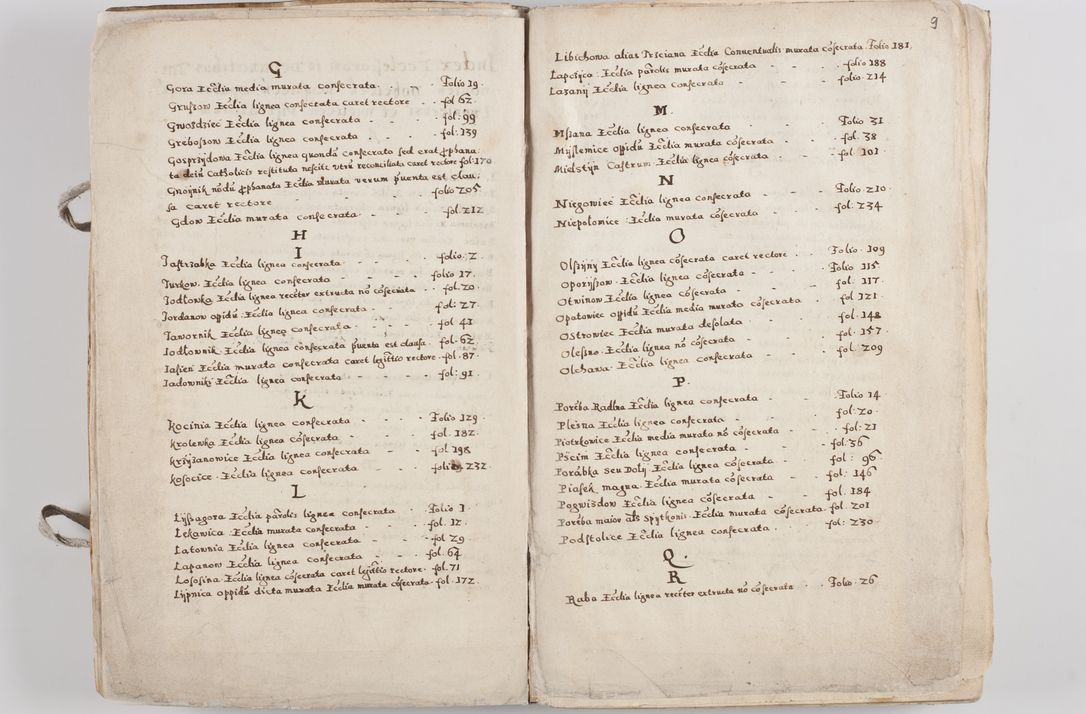 G
Gora Ecclia media murata consecrata - Folio 19.
Grussow Ecclia lignea consecrata caret rectore - fol 62.
Gwosdziec Ecclia lignea consecrata - fol: 99
Grebossow Ecclia lignea consecrata - fol: 139
Gosprzydowa Ecclia lignea quondā consecrata sed erat ꝓphana:
ta dein Catholicis restituta nescit utrū reconciliata caret rectore fol: 170
Gnoynik nōdū ꝓphanata Ecclia murata verum ꝑuenta est clau:
sa caret rectore - folio 205
Gdow Ecclia murata consecrata - fol. 212
H
I
Jastrzabka Ecclia lignea consecrata - folio: 2.
Jurkow. Ecclia lignea consecrata - folio 17.
Jodlowka Ecclia lignea recēter extructa nō cōsecrata - fol. 20.
Jordanow oppidū Ecclia lignea consecrata - fol: 27.
Jawornik Ecclia lignea consecrata - fol 41
Jodłownik Ecclia lignea consecrata ꝑuenta est clausa. fol. 62
Jasień Ecclia murata consecrata caret legittīo rectore - fol. 87.
Jadowniki Ecclia lignea consecrata - fol: 91.
K
Kocinia Ecclia lignea consecrata - Folio 129.
Krolewka Ecclia lignea consecrata - fol. 182.
Krzyżanowice Ecclia lignea consecrata - fol 198
Kosocice. Ecclia lignea consecrata - folio 232.
L
Lyssagora Ecclia parolis lignea consecrata - Folio 1.
Lekawica. Ecclia murata consecrata - fol. 12.
Latownia Ecclia lignea consecrata - fol 29.
Lapanow Ecclia lignea consecrata - fol. 64
Lososina Ecclia lignea cōsecrata caret legittīo rectore - fol. 71
Lypnica oppidū dicta murata Ecclia murata cōsecrata - fol. 172.
9
Libichowa alias Trściana Ecclia Conuentualis murata cōsecrata. Folio 181.
Lapczyca. Ecclia parolis murata cōsecrata - folio 188
Lazany Ecclia lignea consecrata - folio. 214
M.
Mssana Ecclia lignea consecrata - Folio 31
Myslemice oppidū Ecclia murata consecrata - fol. 38
Mielstyn Castrum Ecclia lignea cōsecrata - fol 101
N
Niegowiec Ecclia lignea consecrata - Folio. 210
Niepolomice. Ecclia murata consecrata - fol. 234
O
Olszyny Ecclia lignea cōsecrata caret rectore - Folio. 109
Oporyszow. Ecclia lignea cōsecrata - Folio 115.
Otwinow Ecclia lignea cōsecrata - fol. 117
Opatowiec oppidū Ecclia media murata cōsecrata - fol 121
Ostrowiec Ecclia murata desolata - fol. 148
Olesno. Ecclia lignea nō cōsecrata - fol. 157
Olchawa. Ecclia lignea consecrata - fol. 209
P.
Porēba Radlna Ecclia lignea consecrata - Folio 14
Plesna Ecclia lignea consecrata - fol. 20.
Piotrkowice Ecclia media murata nō cōsecrata - fol: 21
Pścim Ecclia lignea consecrata - fol. 36
Porābka seu Dolij Ecclia lignea cōsecrata - fol: 96
Piasek magna Ecclia murata cōsecrata - fol: 146
Pogwisdow Ecclia lignea cōsecrata - fol. 184
Porēba maior als Spytkonis. Ecclia murata cōsecrata. fol. 201
Podstolice Ecclia lignea consecrata - fol: 230
Q.
R
Raba Ecclia lignea recēter extructa nō cōsecrata - Folio. 26